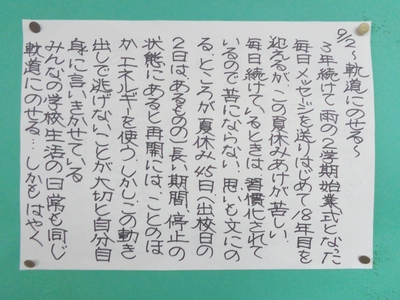 9/2〜軌道にのせる〜
3年続けて雨の2学期始業式となった
毎日メッセージを送りはじめて18年目を
迎えるが、この夏休みあけが苦しい
毎日続けているときは、習慣化されて
いるので苦にならない。思いも文にの
る。ところが夏休み45日(出校日の
2日は、あるものの)長い期間、停止の
状態にあると再開には、ことのほ
か、エネルギーを使う。しかし、この動き
出しで逃げないことが大切と自分自
身に言いきかせている
みんなの学校生活の日常も同じ
軌道にのせる…しかもはやく